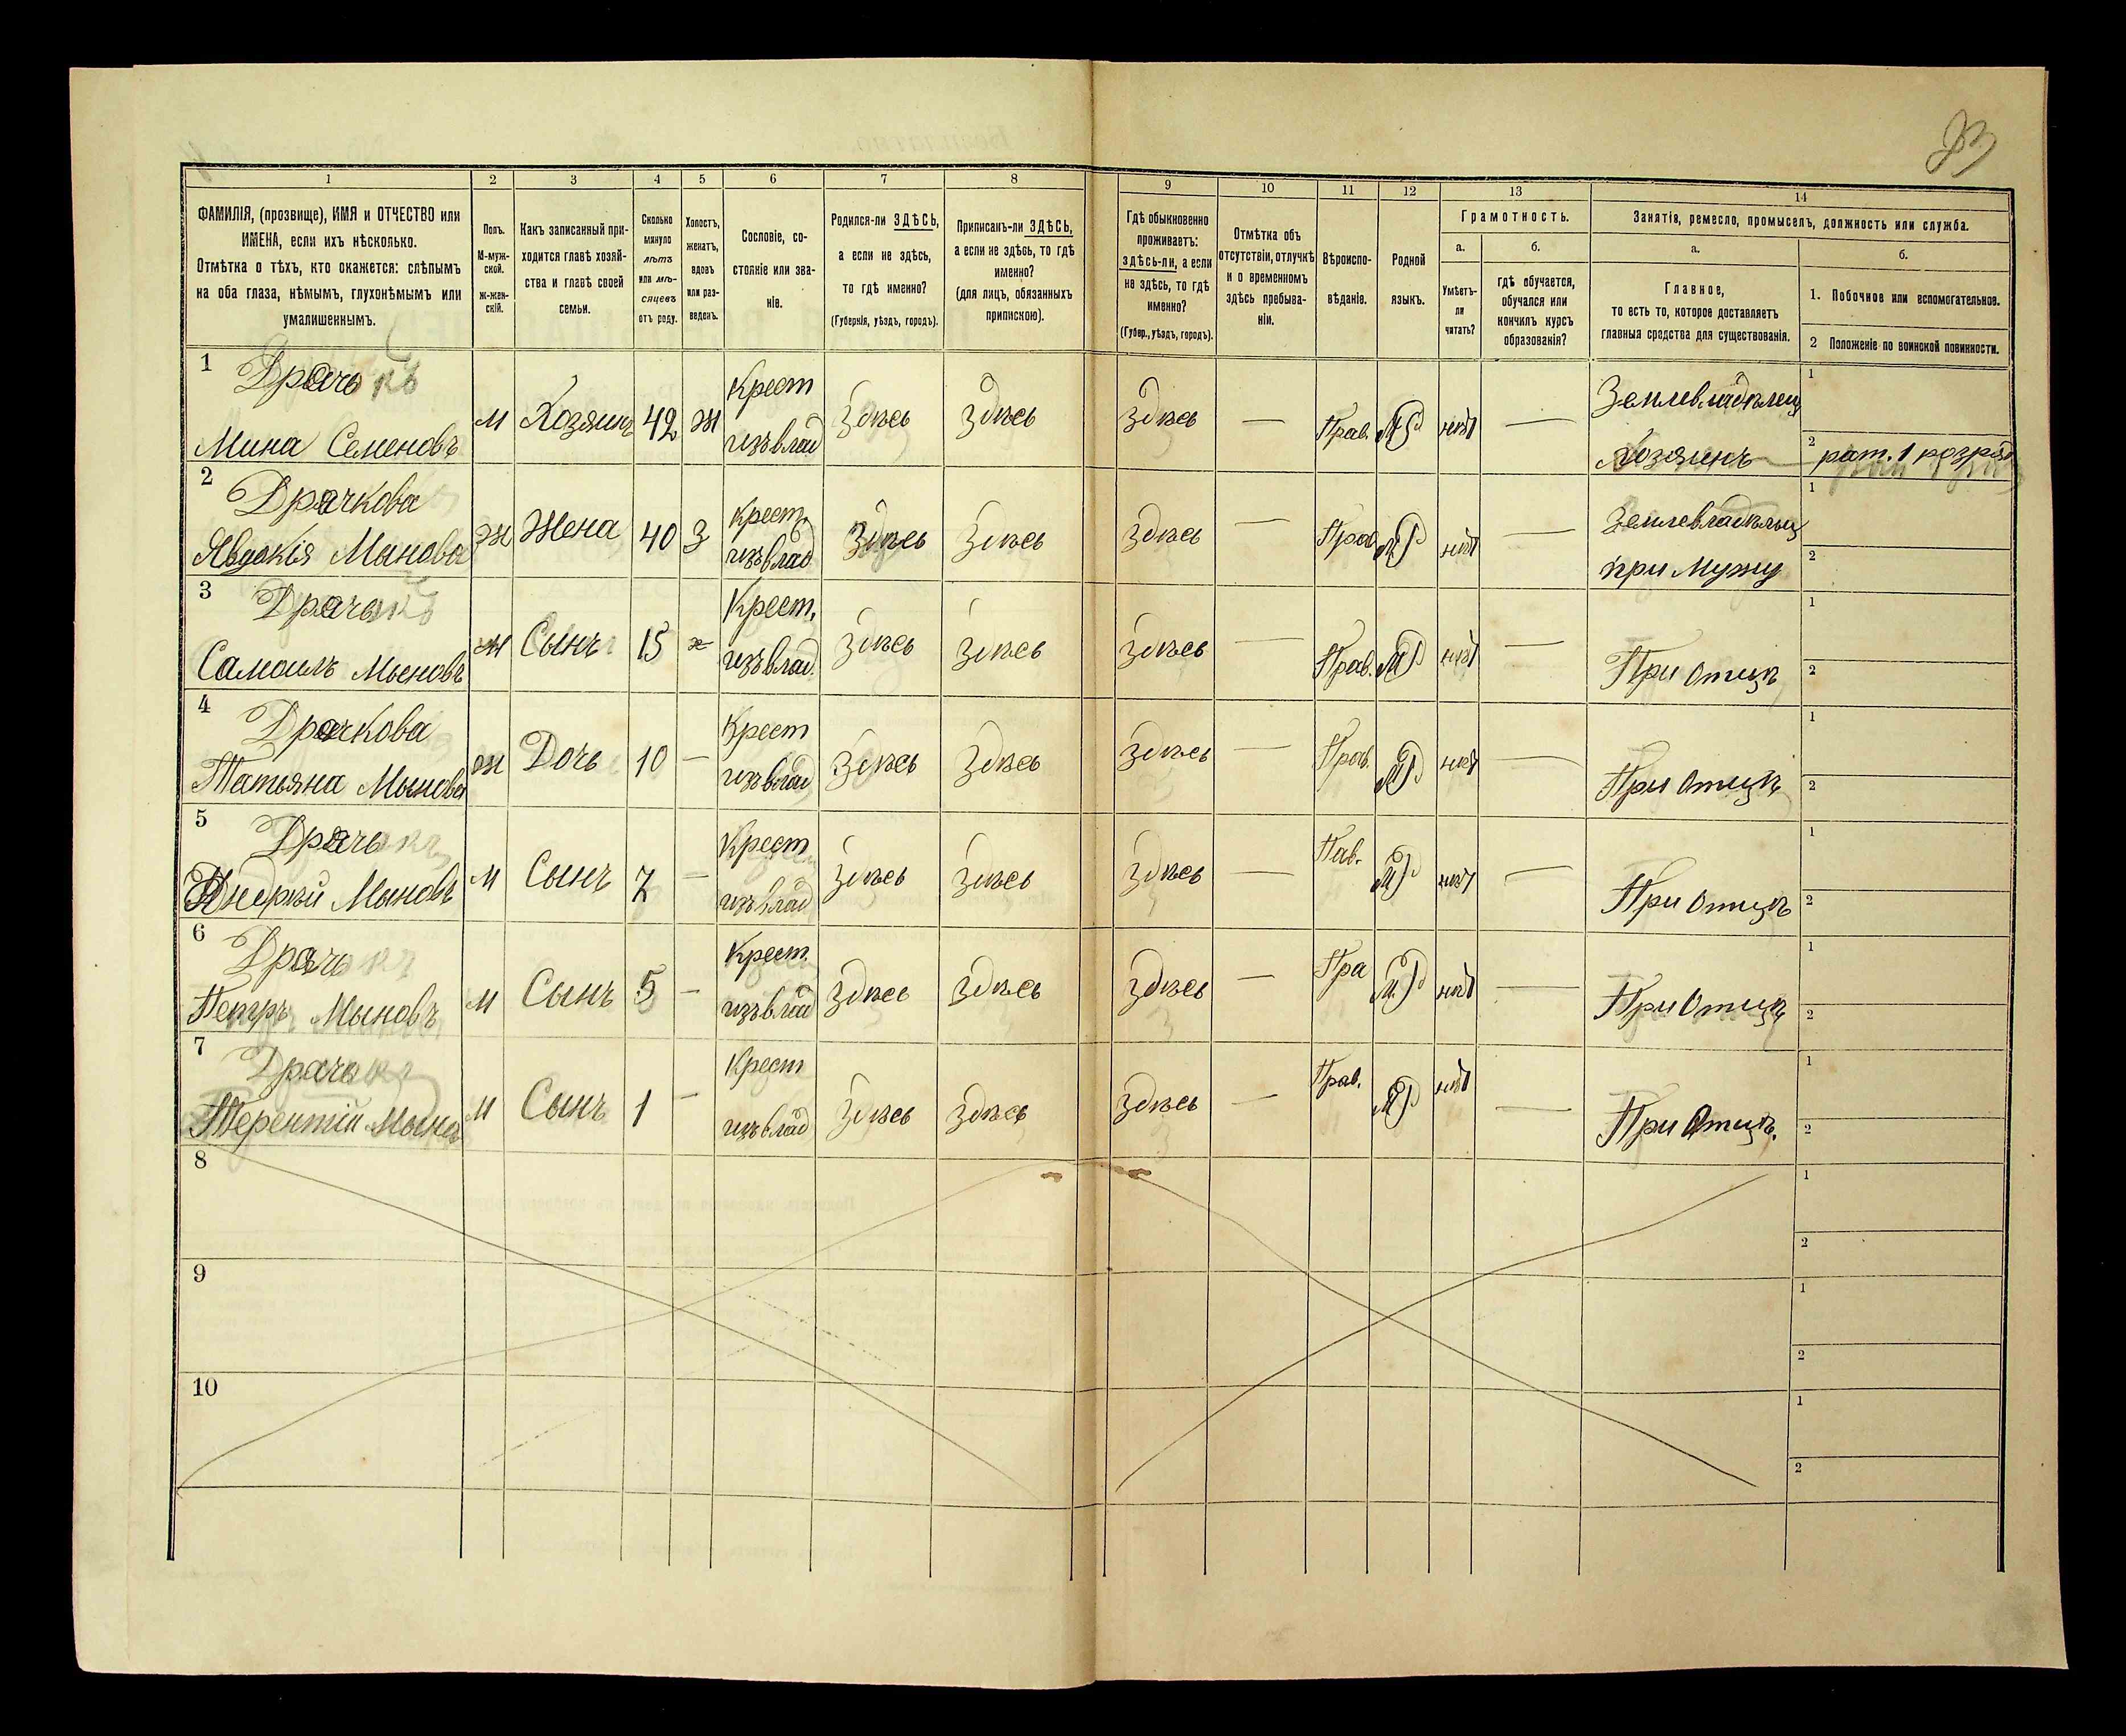 23
1 2 3 4 5 6 7 8 9 10 11 12 13 14
ФАМИЛІЯ, (прозвище), ИМЯ и ОТЧЕСТВО или
ИМЕНА, если ихъ нѣсколько.
Отмѣтка о тѣхъ, кто окажется: слѣпымъ
на оба глаза, нѣмымъ, глухонѣмымъ или
умалишеннымъ.
Полъ.
М-муж-
ской.
Ж-жен-
скій.
Какъ записанный при-
ходится главѣ хозяй-
ства и главѣ своей
семьи.
Сколько
минуло
лѣтъ
или мѣ-
сяцевъ
отъ роду.
Холостъ,
женатъ,
вдовъ
или раз-
веденъ.
Сословіе, со-
стояніе или зва-
ніе.
Родился-ли ЗДѢСЬ,
а если не здѣсь,
то гдѣ именно?
(Губернія, уѣздъ, городъ).
Приписанъ-ли ЗДѢСЬ,
а если не здѣсь, то гдѣ
именно?
(для лицъ, обязанныхъ
припискою).
Гдѣ обыкновенно
проживаетъ:
здѣсь-ли, а если
не здѣсь, то гдѣ
именно?
(Губер., уѣздъ, городъ).
Отмѣтка объ
отсутствіи, отлучкѣ
и о временномъ
здѣсь пребыва-
ніи.
Вѣроиспо-
вѣданіе.
Родной
языкъ.
Грамотность.
а.
Умѣетъ-
ли
читать?
б.
гдѣ обучается,
обучался или
кончилъ курсъ
образованія?
Занятія, ремесло, промыселъ, должность или служба.
а.
Главное,
то есть то, которое доставляетъ
главныя средства для существованія.
б.
1. Побочное или вспомогательное.
2 Положеніе по воинской повинности.
1 Драчь Крест Землевладѣлец 1
Мина Семеновъ м Хозяинъ 42 ж изъ влад Здѣсь Здѣсь Здѣсь — Прав. М нѣт — Хозяинъ 2 рат. 1 розряд
2 Драчкова крест. Землевладѣлец 1
Явдокія Мынова ж Жена 40 З изъ влад Здѣсь Здѣсь Здѣсь — Прав М нѣт — при Мужу 2
3 Драчь Крест. 1
Самоилъ Мыновъ м Сынъ 15 х изъ влад. Здѣсь Здѣсь Здѣсь — Прав. М нѣт — При Отцѣ 2
4 Драчкова Крест 1
Татьяна Мынова ж Дочь 10 — изъ влад Здѣсь Здѣсь Здѣсь — Прав. М нѣт — При Отцѣ 2
5 Драчь Крест 1
Андрѣй Мыновъ м Сынъ 7 — изъ влад Здѣсь Здѣсь Здѣсь — Пав. М нѣт — При Отцѣ 2
6 Драчь Крест. 1
Петръ Мыновъ м Сынъ 5 — изъ влад Здѣсь Здѣсь Здѣсь — Пра М нѣт — При Отцѣ 2
7 Драчь Крест 1
Терентій Мынов м Сынъ 1 — изъ влад Здѣсь Здѣсь Здѣсь — Прав. М нѣт — При Отцѣ. 2
8 1
2
9 1
2
10 1
2